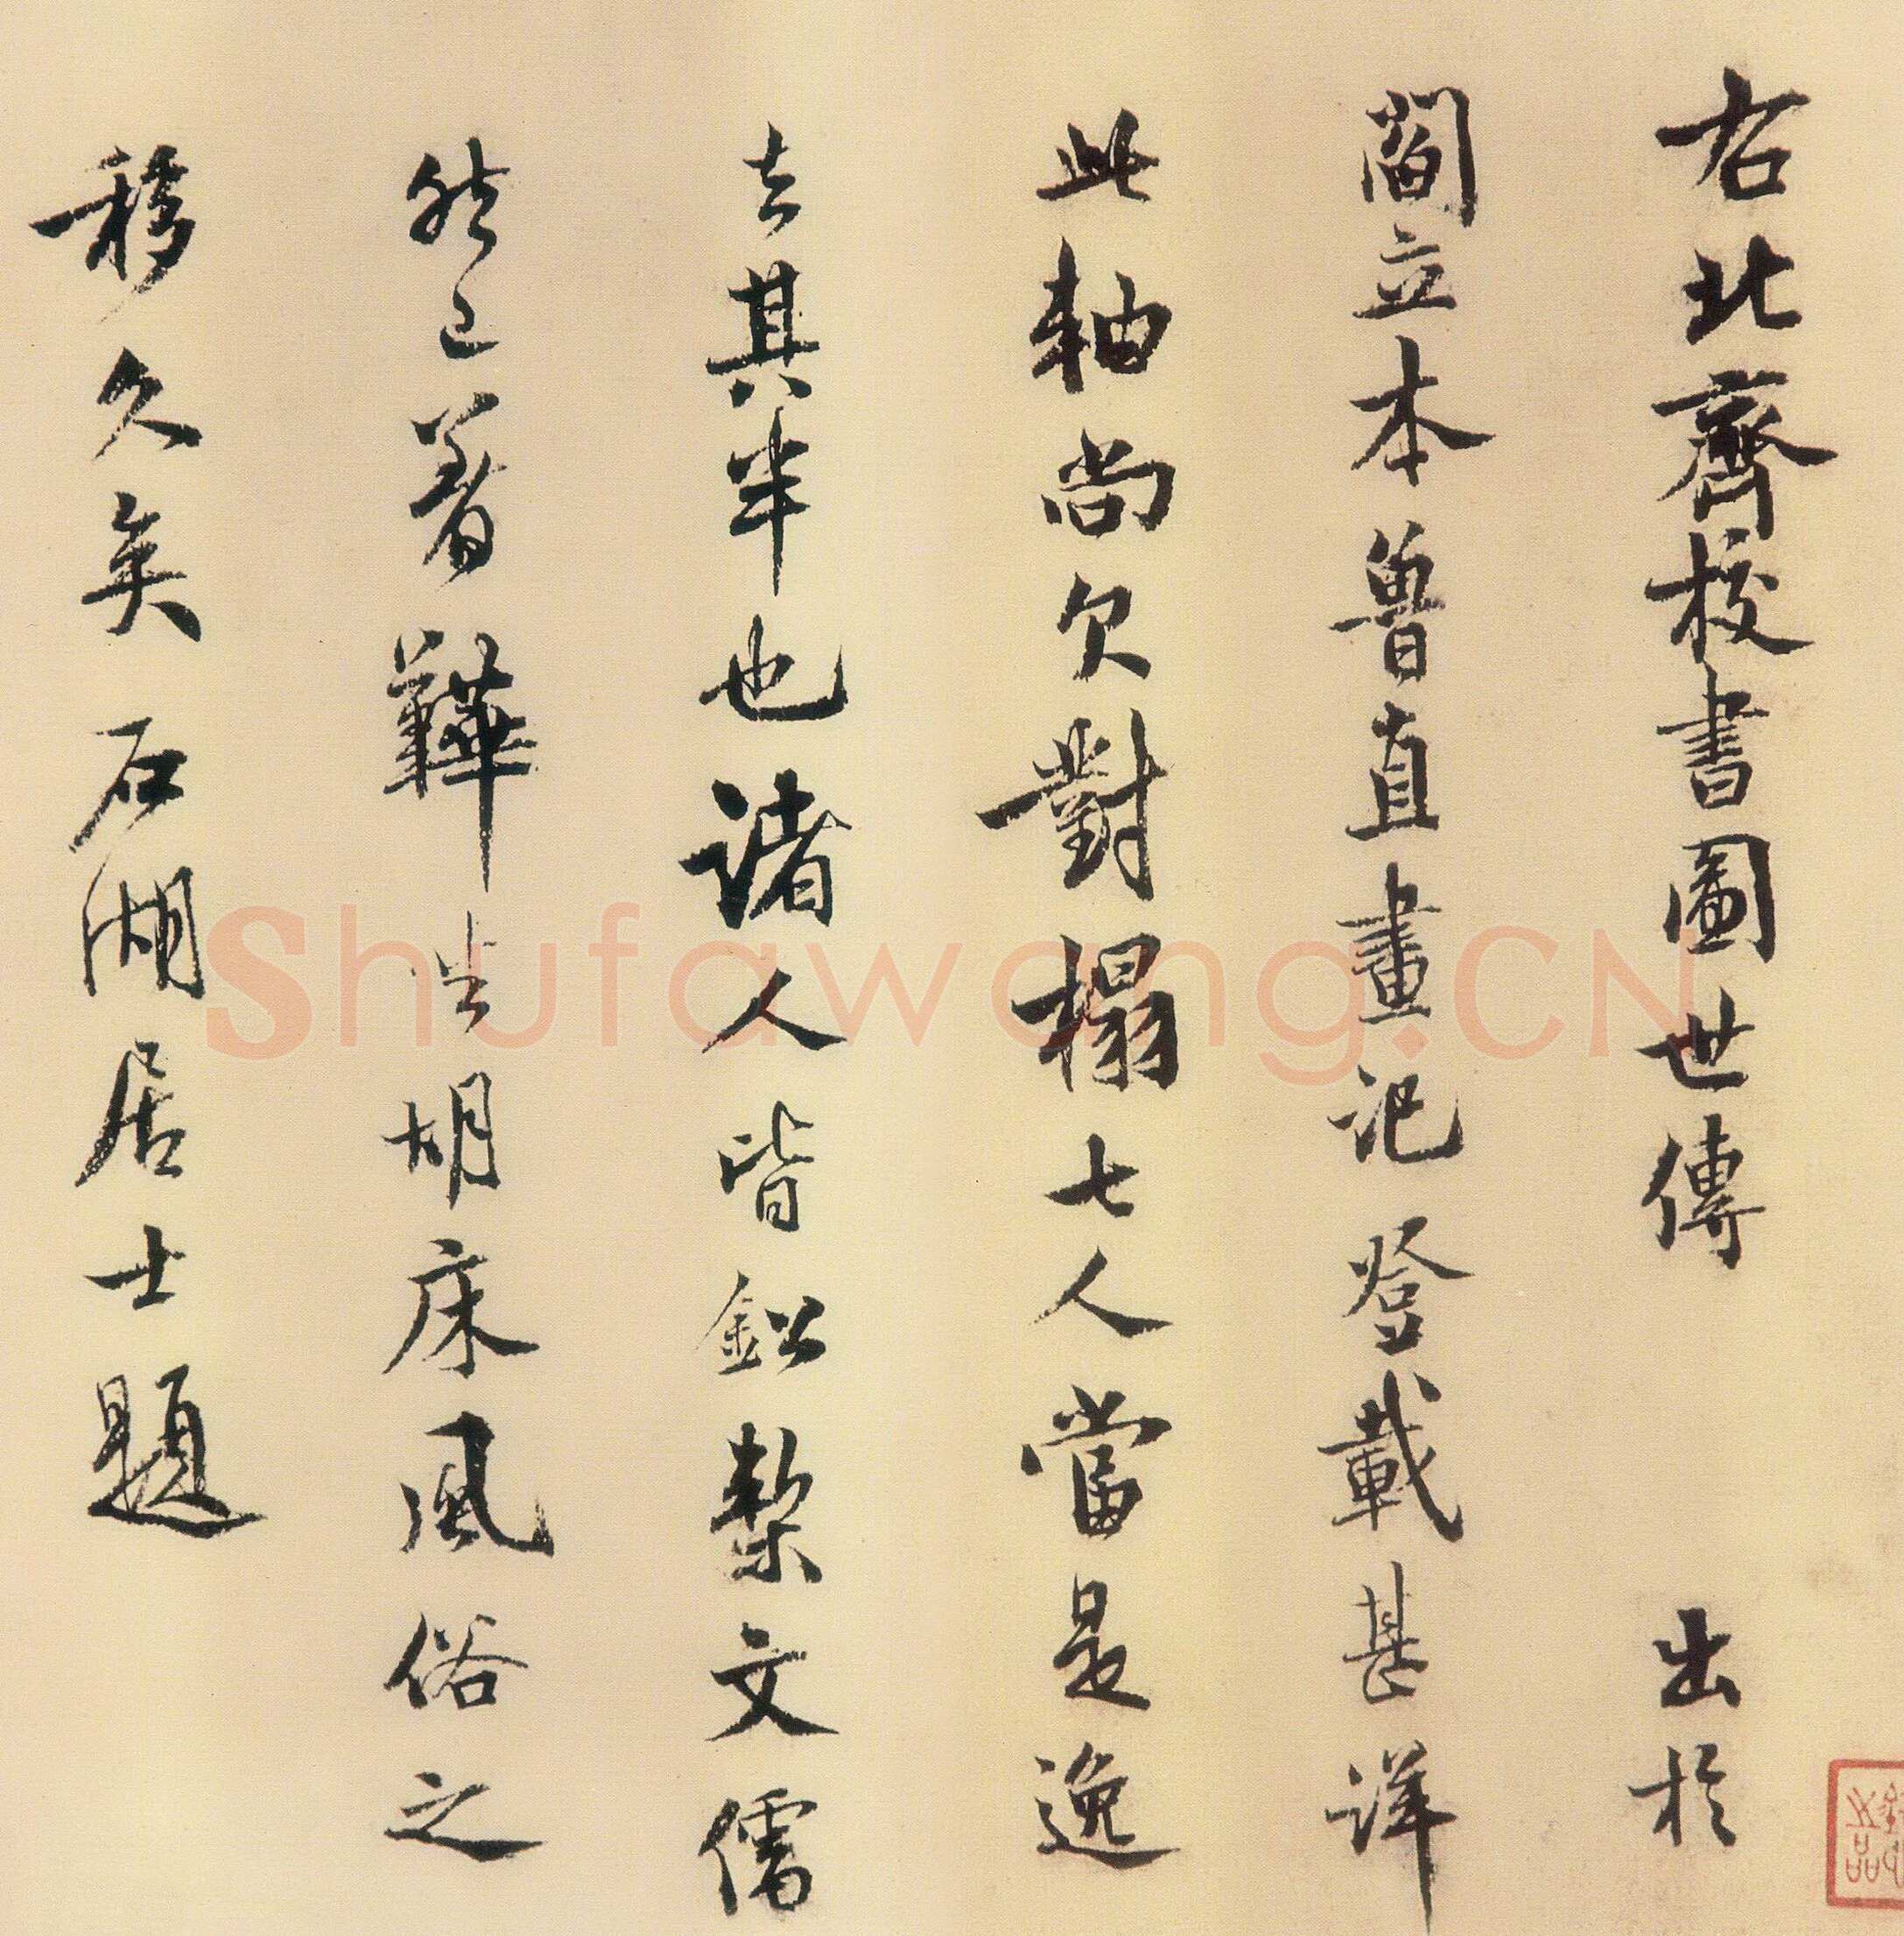 右北齊校書圖世傳 出於
閻立本魯直畫記登載甚詳
此軸尚欠對榻七人當是逸
去其半也諸人皆鉛槧文儒
然已著鞾坐胡床風俗之
移久矣 石湖居士題
Shufawang.CN